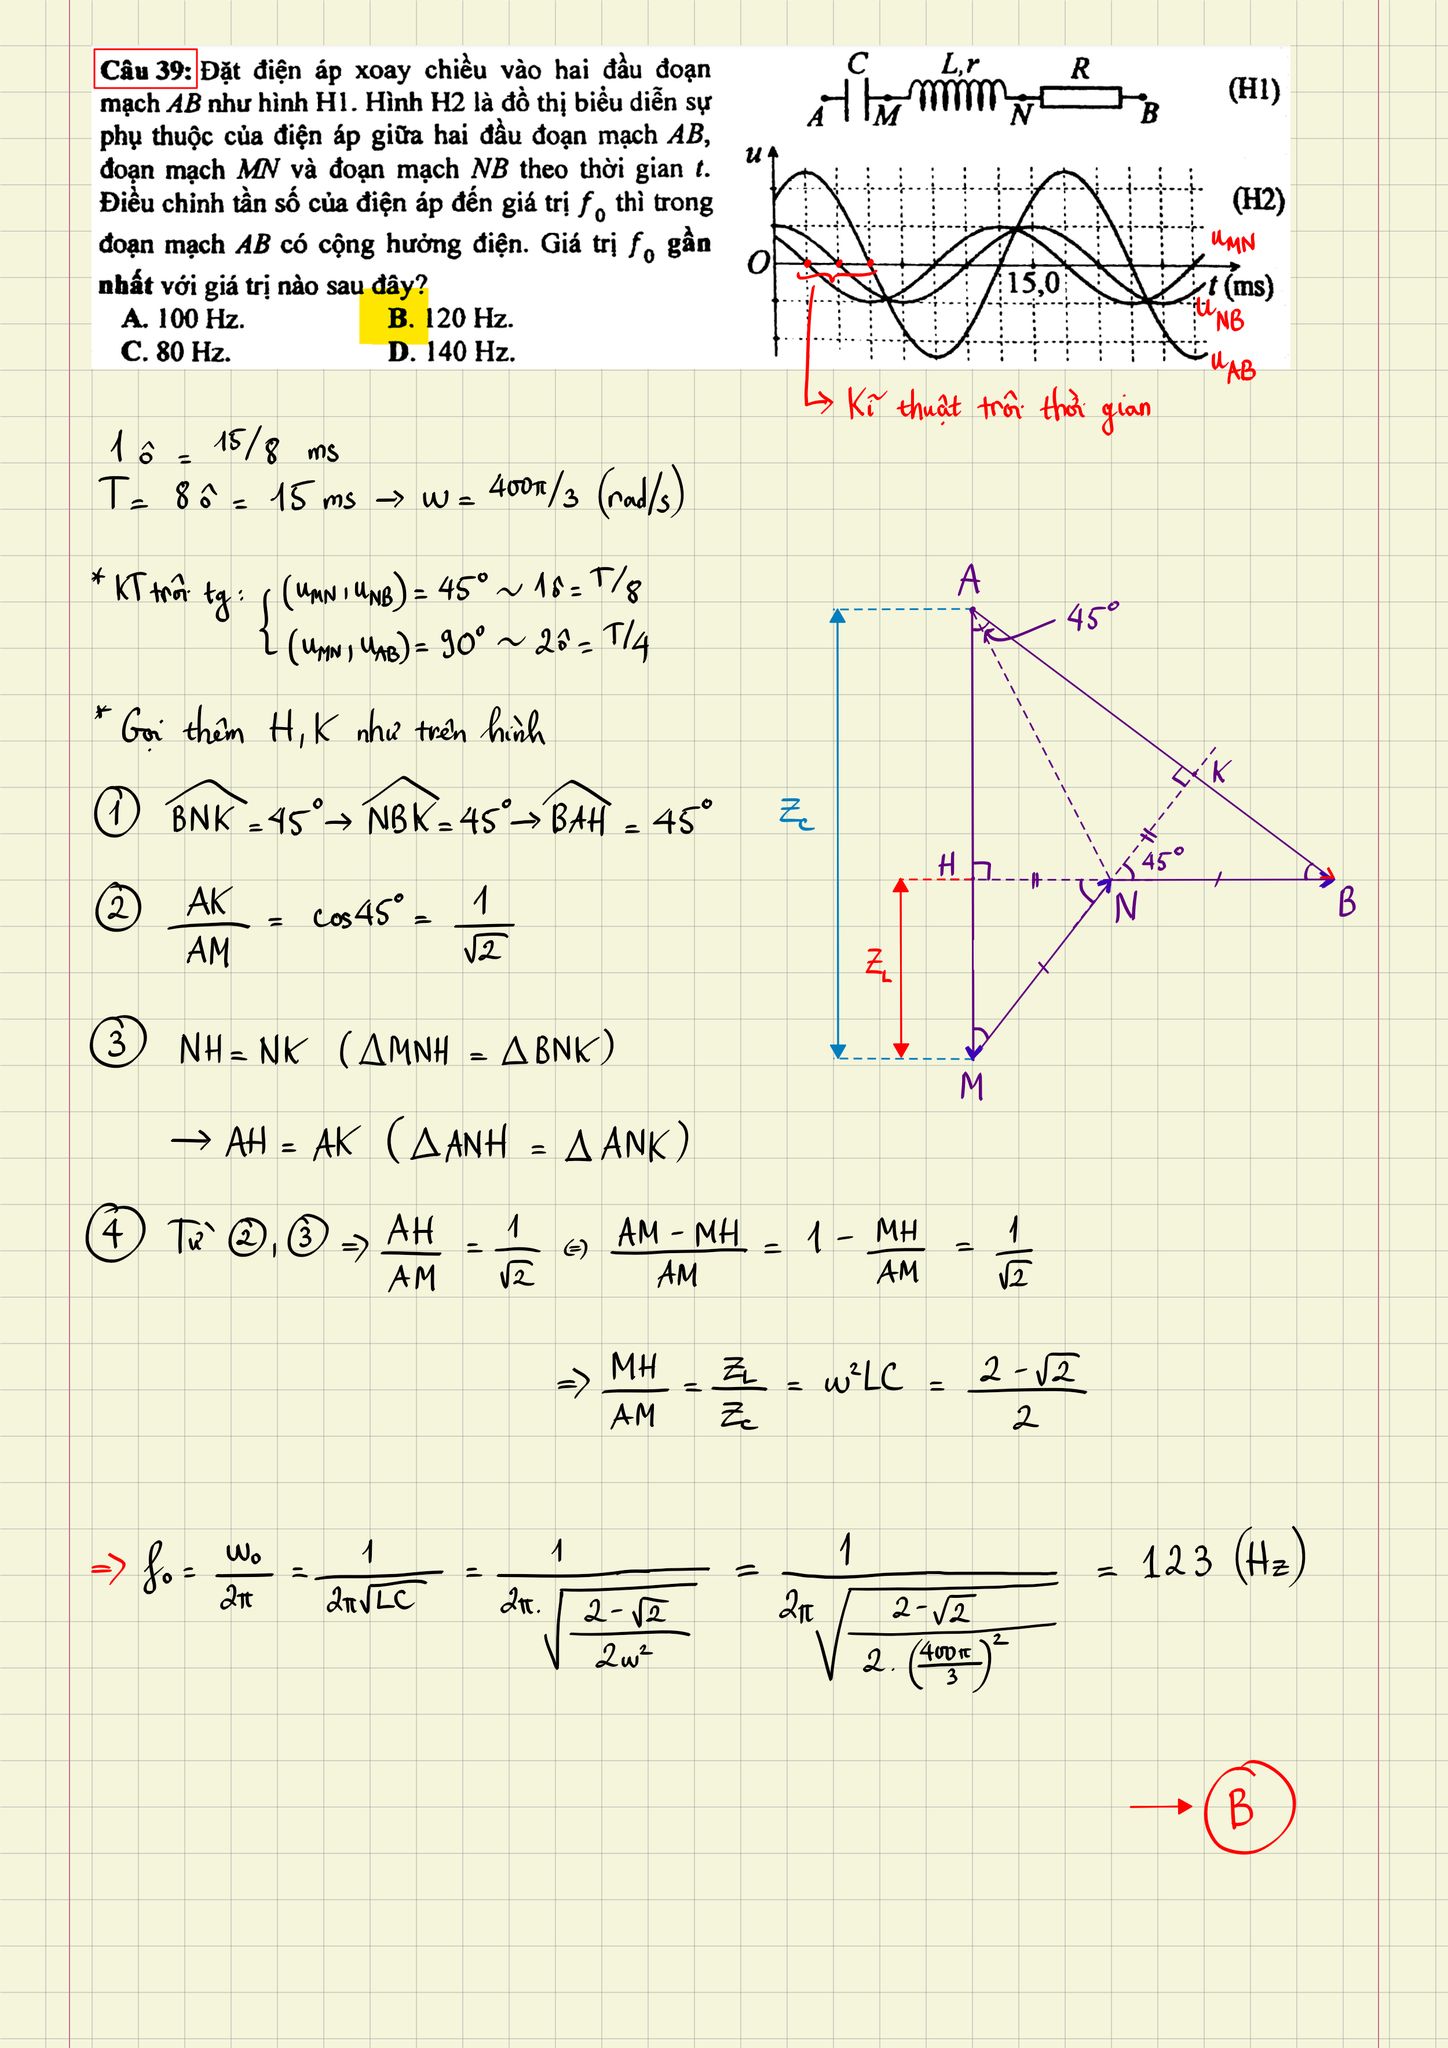 Câu 39: Đặt điện áp xoay chiều vào hai đầu đoạn
mạch AB như hình H1. Hình H2 là đồ thị biểu diễn sự
phụ thuộc của điện áp giữa hai đầu đoạn mạch AB,
đoạn mạch MN và đoạn mạch NB theo thời gian t.
Điều chỉnh tần số của điện áp đến giá trị f₀ thì trong
đoạn mạch AB có cộng hưởng điện. Giá trị f₀ gần
nhất với giá trị nào sau đây?
A. 100 Hz. B. 120 Hz.
C. 80 Hz. D. 140 Hz.
C L,r R
A M N B (H1)
u
(H2)
u_MN
O 15,0 t (ms)
u_NB
u_AB
Kĩ thuật trôi thời gian
1 ô = 15/8 ms
T = 8ô = 15 ms → ω = 400π/3 (rad/s)
* KT trôi tg: { (u_MN, u_NB) = 45° ~ 1ô = T/8
(u_MN, u_AB) = 90° ~ 2ô = T/4
* Gọi thêm H, K như trên hình
① BNK = 45° → NBK = 45° → BAH = 45°
② AK/AM = cos45° = 1/√2
③ NH = NK (ΔMNH = ΔBNK)
→ AH = AK (ΔANH = ΔANK)
A
45°
K
Z_C
H
45°
N
B
Z_L
M
④ Từ ②, ③ ⇒ AH/AM = 1/√2 ⇔ (AM - MH)/AM = 1 - MH/AM = 1/√2
⇒ MH/AM = Z_L/Z_C = ω²LC = (2 - √2)/2
⇒ f₀ = ω₀/2π = 1/(2π√LC) = 1/(2π.√((2 - √2)/(2ω²))) = 1/(2π√((2 - √2)/(2.(400π/3)²))) = 123 (Hz)
→ B